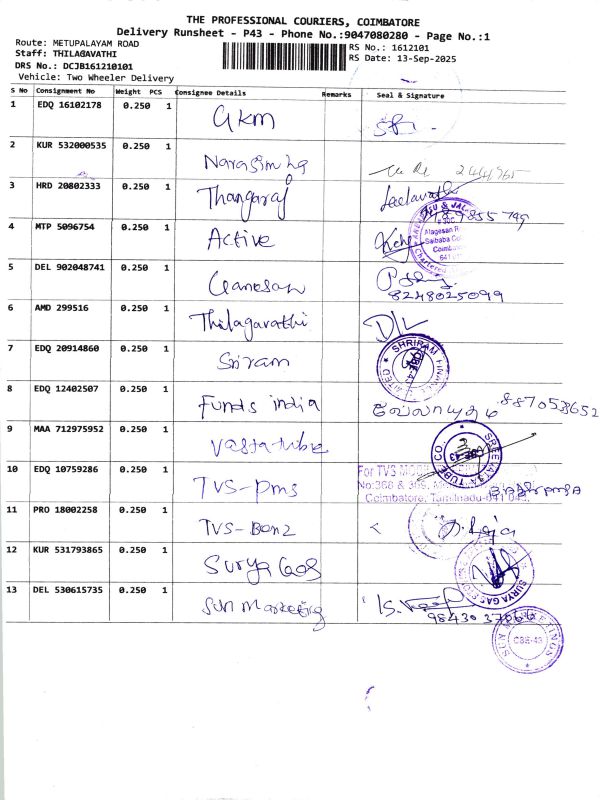 THE PROFESSIONAL COURIERS, COIMBATORE
Delivery Runsheet - P43 - Phone No.:9047080280 - Page No.:1
Route: METUPALAYAM ROAD
Staff: THILAGAVATHI
DRS No.: DCJB161210101
Vehicle: Two Wheeler Delivery
RS No.: 1612101
RS Date: 13-Sep-2025
S No Consignment No Weight PCS Consignee Details Remarks Seal & Signature
1 EDQ 16102178 0.250 1 GKM
2 KUR 532000535 0.250 1 Narasimha
3 HRD 20802333 0.250 1 Thangaraj Leelavathi
4 MTP 5096754 0.250 1 Active
Alagesan R
Saibaba Co
Coimb
5 DEL 902048741 0.250 1 Ganesan
8248025099
6 AMD 299516 0.250 1 Thilagavathi D/L
7 EDQ 20914860 0.250 1 Sriram SHRIRAM FINANCE
8 EDQ 12402507 0.250 1 Funds india
9 MAA 712975952 0.250 1 Vastatube SREEVATSA TUBE CO.
10 EDQ 10759286 0.250 1 TVS-pms
For TVS
No:368 & 369,
Coimbatore, Tamilnadu-641 043.
11 PRO 18002258 0.250 1 TVS-Benz
12 KUR 531793865 0.250 1 Surya Gas SURYA GAS
13 DEL 530615735 0.250 1 Sun Marketing
SUN MARKETINGS
CBE-43